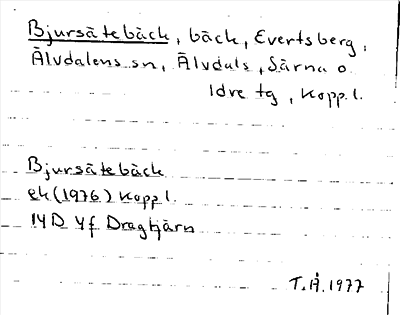 Bjursätebäck, bäck, Evertsberg,
Älvdalens sn, Älvdals, Särna o
Idre tg, Kopp.l.
Bjursätebäck
ek (1976) Kopp l.
14D 4f Dragtjärn
T.Å. 1977